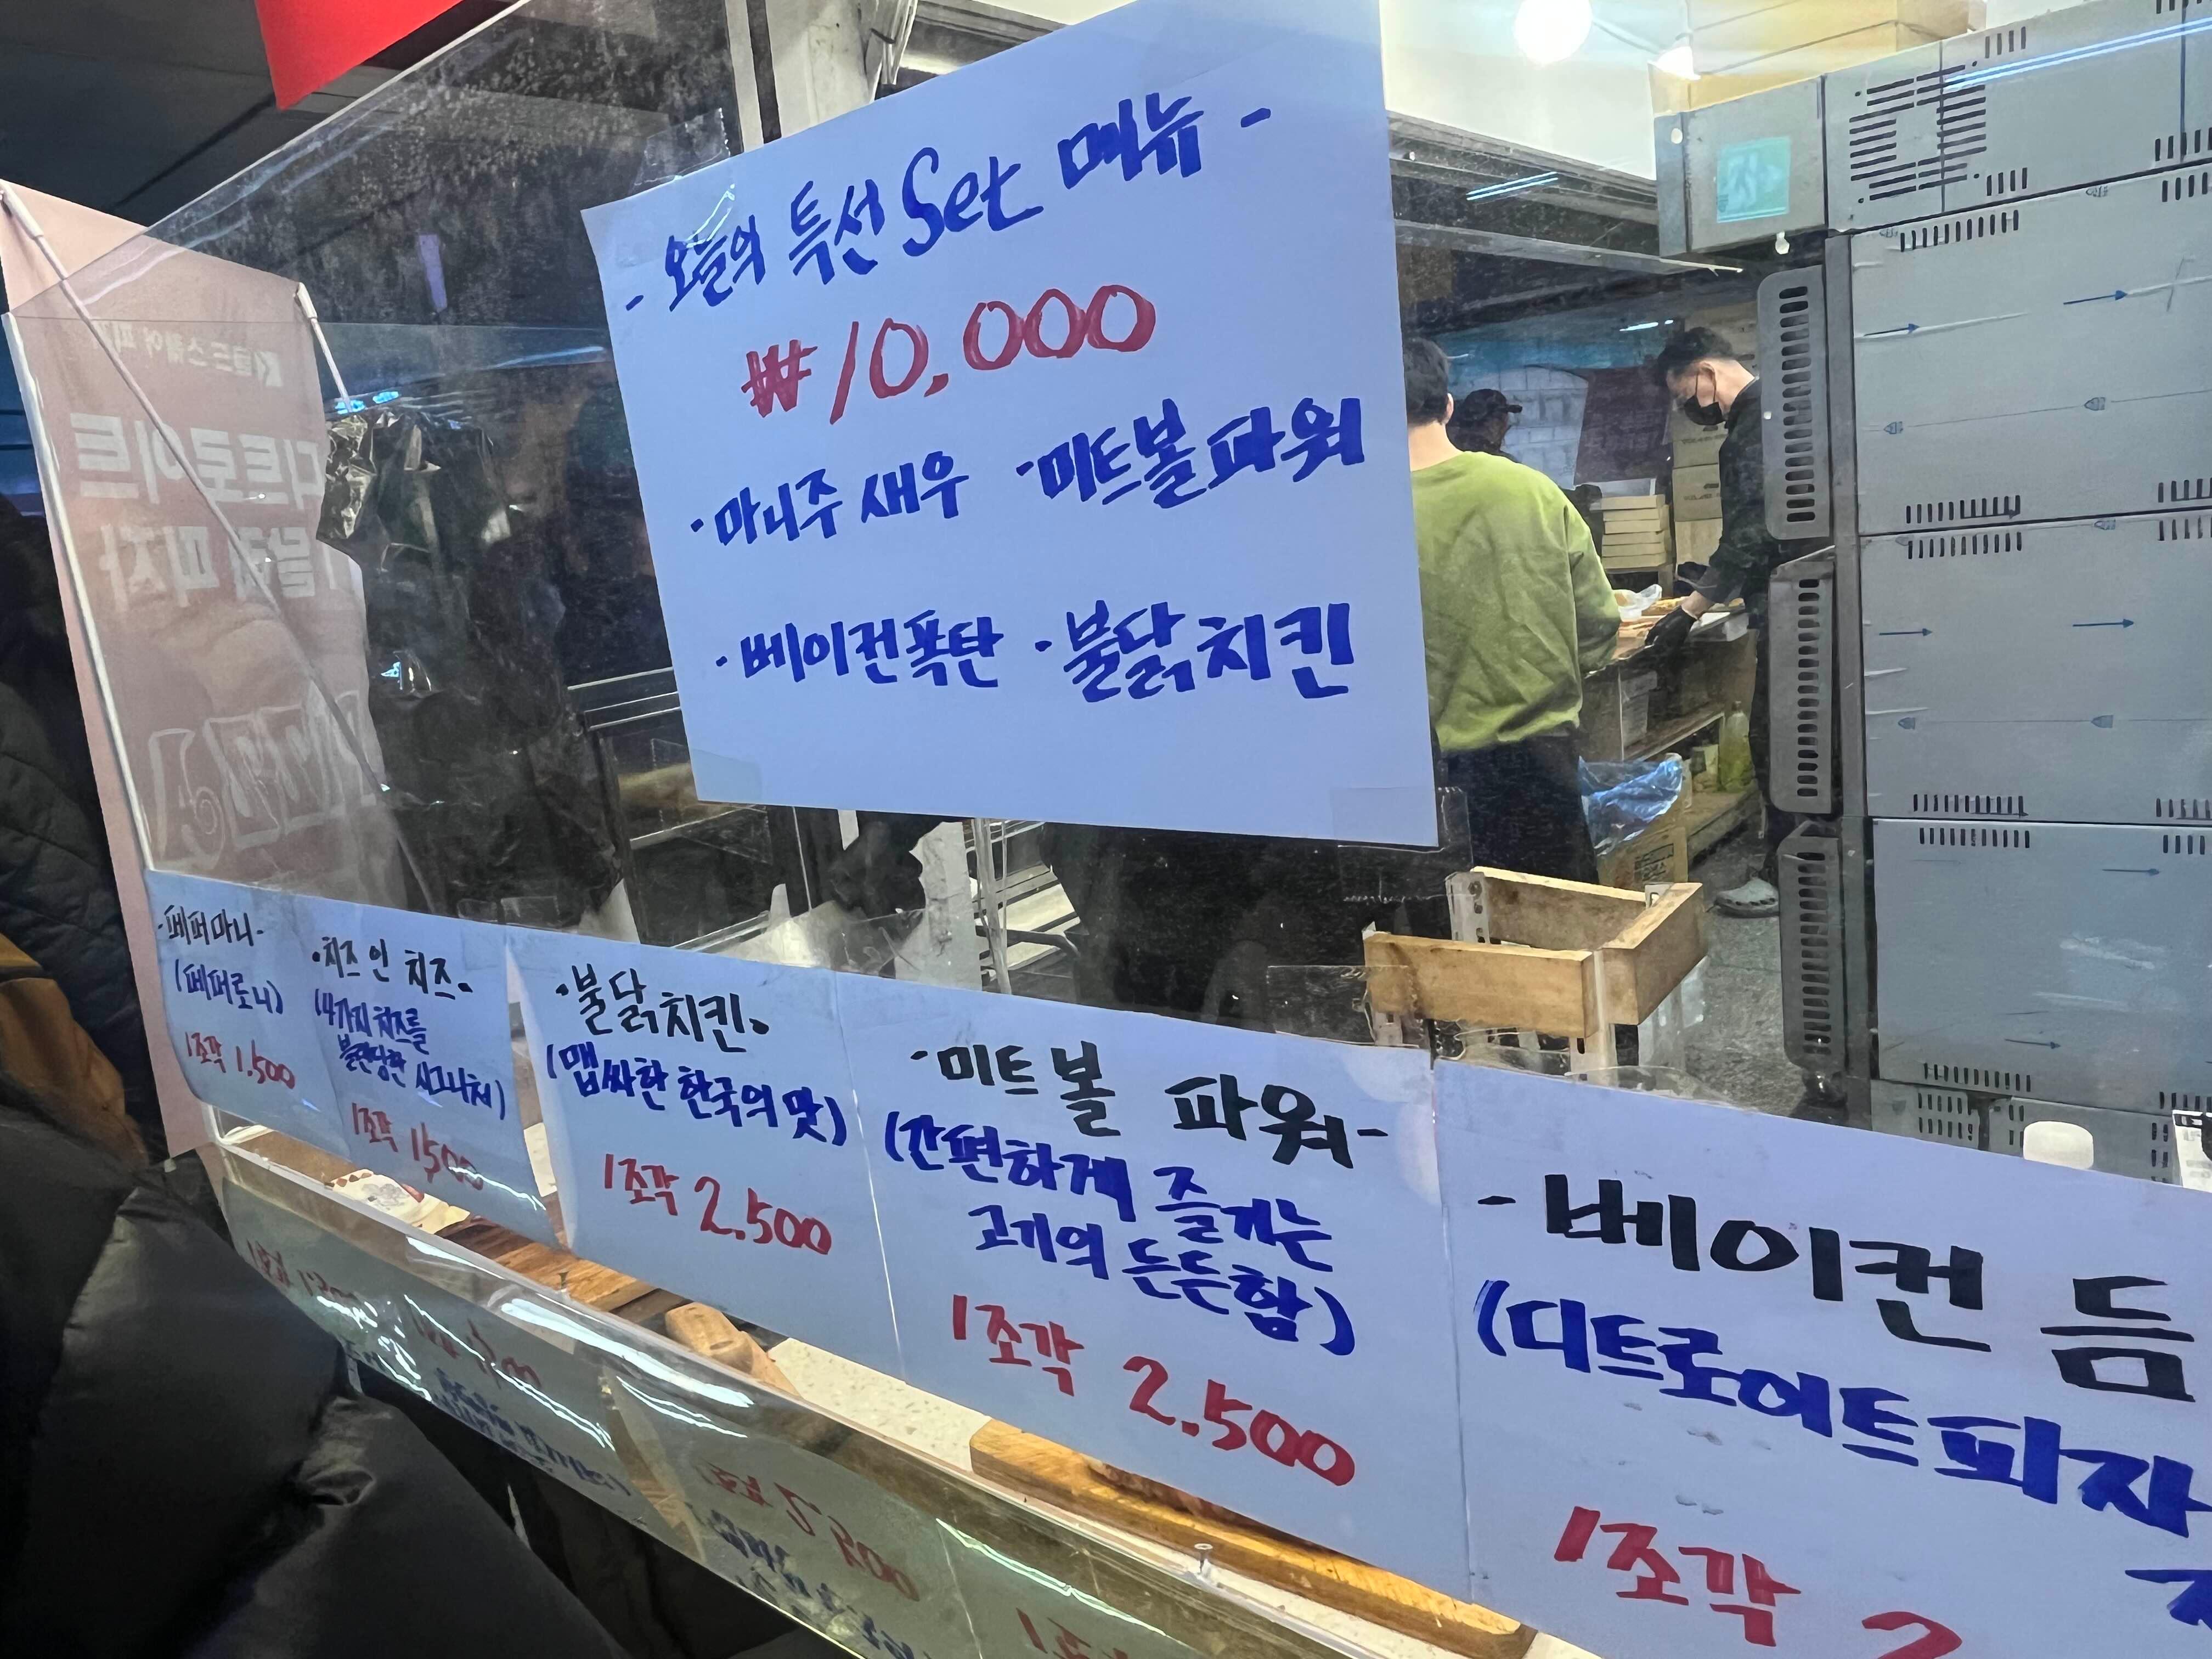 - 오늘의 특선 Set 메뉴 -
₩10,000
· 마니주 새우 · 미트볼파워
· 베이컨폭탄 · 불닭치킨
- 페퍼마니 -
(페퍼로니)
1조각 1,500
• 치즈 인 치즈 •
(4가지 치즈를
블랜딩한 시그니처)
1조각 1500
• 불닭치킨 •
(맵싸한 한국의 맛)
1조각 2.500
- 미트볼 파워 -
(간편하게 즐기는
고기의 든든함)
1조각 2.500
- 베이컨 듬
(디트로이트피자
1조각 2
디트로이트
피자